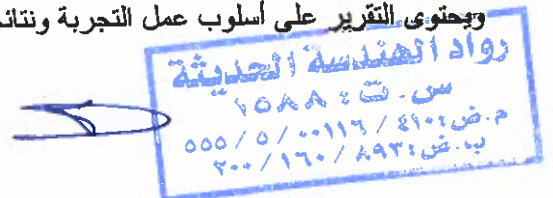 ويحتوى التقرير على أسلوب عمل التجربة ونتائج
رواد الهندسة الحديثة
س. ت: ١٥٨٨
م.ض: ٤١٠ / ٠٠١١٩ / ٥ / ٥٥٥
ب. ض: ٨٩٣ / ١٦٠ / ٢٠٠